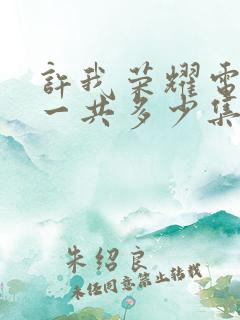 許我荣耀電
一共多少集
朱绍良
未经同意禁止转载